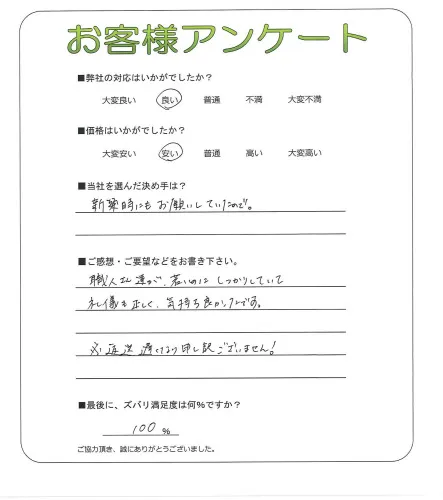 お客様アンケート
■弊社の対応はいかがでしたか?
大変良い 良い 普通 不満 大変不満
■価格はいかがでしたか?
大変安い 安い 普通 高い 大変高い
■当社を選んだ決め手は?
新築時にもお願いしていたので。
■ご感想・ご要望などをお書き下さい。
職人さん達が、若いのにしっかりしていて
礼儀も正しく、気持ち良かったです。
※返送遅くなり申し訳ございません!
■最後に、ズバリ満足度は何%ですか?
100 %
ご協力頂き、誠にありがとうございました。